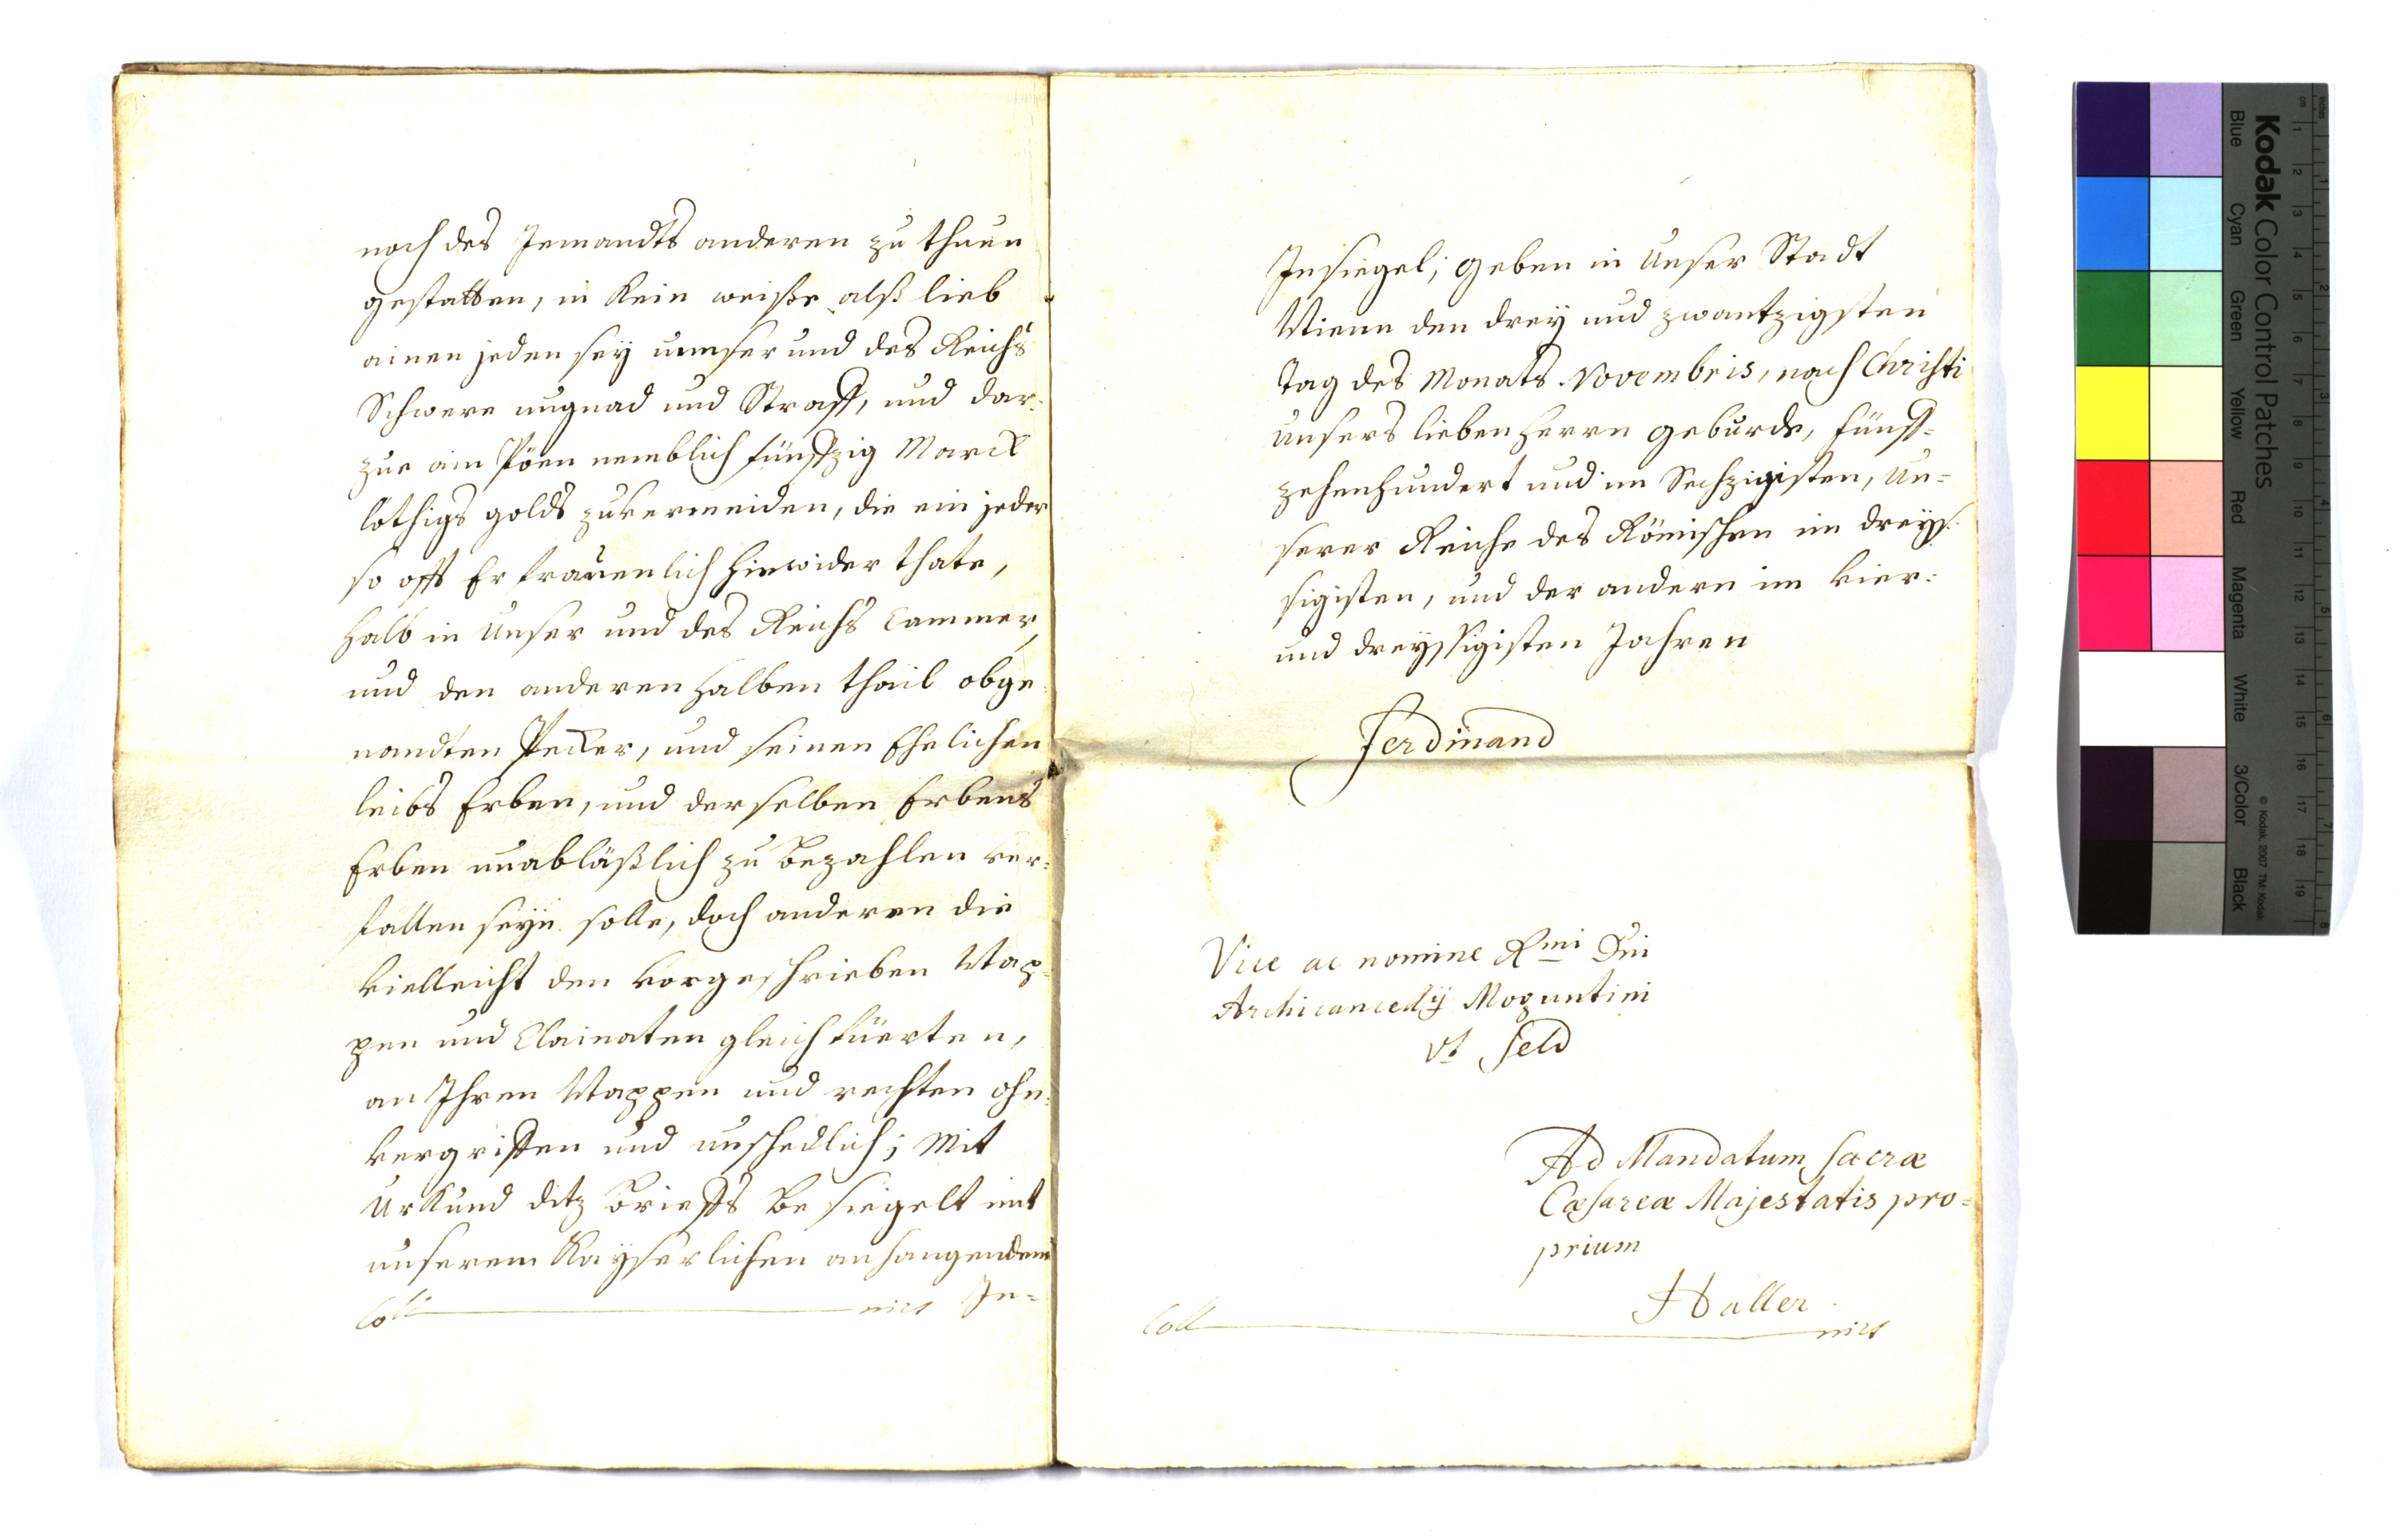 noch des Jemandts anderen zu thuen
gestatten, in kein weiße alß lieb
ainen jeden sey unnser und des Reichs
Schwere ungnad und Straff, und dar-
zue ain Pöen nemblich fünffzig Marck
lothigs golds zuvermeiden, die ein jeder
so offt Er fravenlich hiewider thate,
halb in Unser und des Reichs Cammer,
und den anderen halben thail obge-
nandten Pecker, und seinen Ehelichen
leibs Erben, und derselben Erbens
Erben unabläßlich zu bezahlen ver-
fallen seyn solle, doch anderen die
vielleicht den vorgeschrieben Wap-
pen und Clainaten gleich füerten,
an Ihren Wappen und rechten ohn-
vergriffen und unschedlich; Mit
Urkund ditz brieffs besiegelt mit
unserem Kayserlichen anhangendem
In-
Coll
Insiegel; geben in Unser Stadt
Wienn den drey und zwantzigsten
Tag des Monats Novembris, nach Christi
unsers lieben herrn geburde, fünff-
zehenhundert und im Sechzigisten, Un-
serer Reiche des Römischen im dreys-
sigisten, und der andern im vier-
und dreyssigisten Jahren
Ferdinand
Vice ac nomine Rmi Dni
Archicancellӱ Moguntini
vt Seld
Ad Mandatum Sacræ
Cæsareæ Majestatis pro-
prium
Haller
Coll